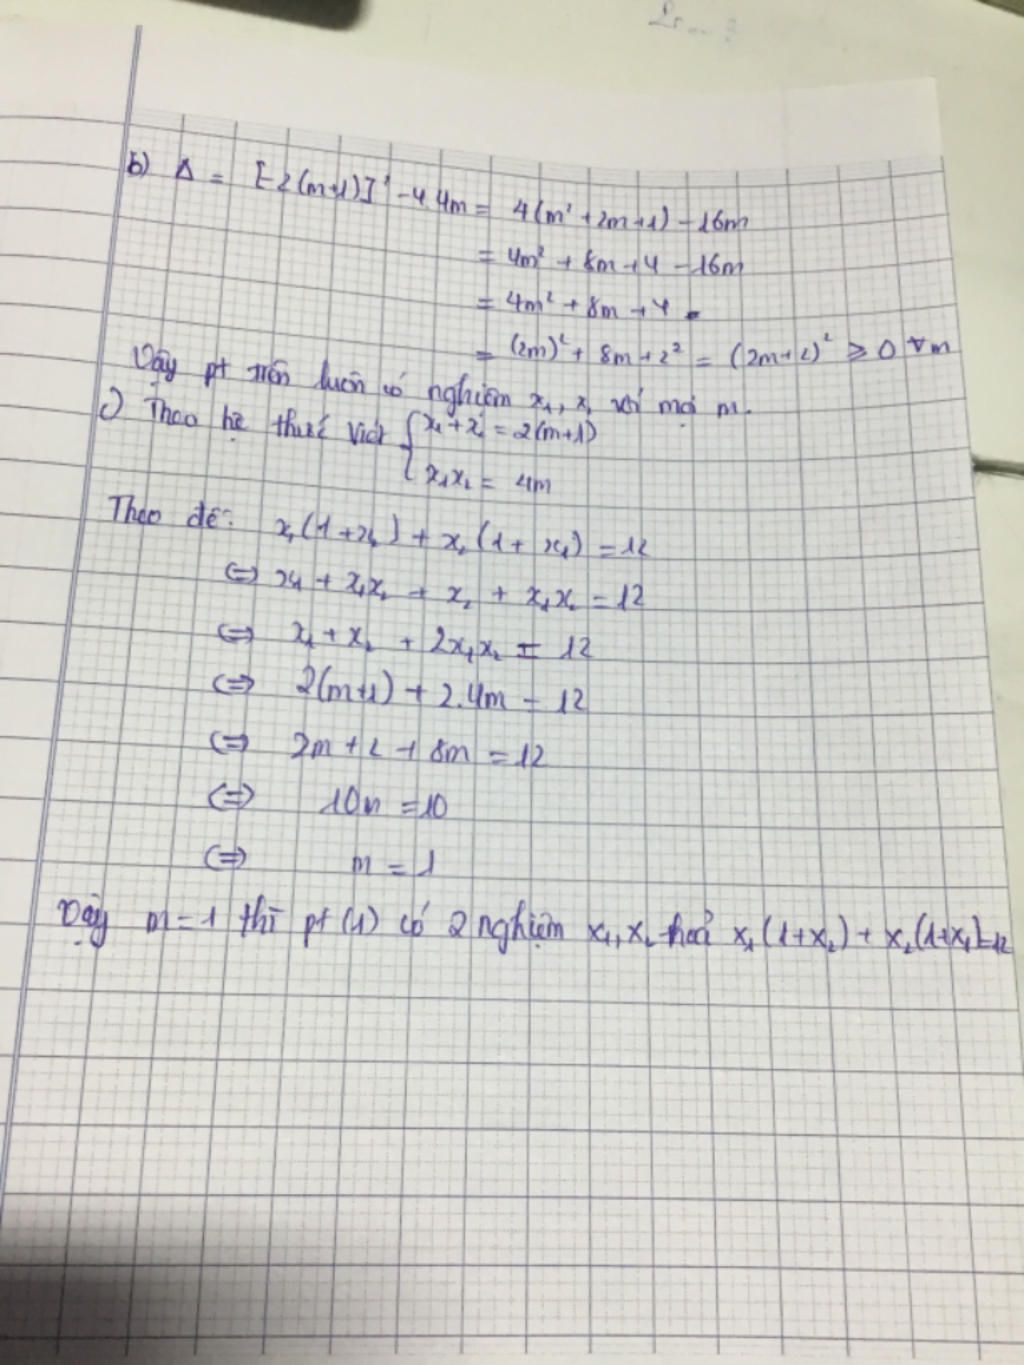 b) Δ = [-2(m+1)]² - 4.4m = 4(m² + 2m + 1) - 16m
= 4m² + 8m + 4 - 16m
= 4m² + 8m + 4
= (2m)² + 8m + 2² = (2m+2)² ⩾ 0 ∀m
Vậy pt trên luôn có nghiệm x₁, x₂ với mọi m.
c) Theo hệ thức Viét { x₁ + x₂ = 2(m+1)
x₁x₂ = 4m
Theo đề: x₁(1+x₂) + x₂(1+x₁) = 12
⇔ x₁ + x₁x₂ + x₂ + x₁x₂ = 12
⇔ x₁ + x₂ + 2x₁x₂ = 12
⇔ 2(m+1) + 2.4m = 12
⇔ 2m + 2 + 8m = 12
⇔ 10m = 10
⇔ m = 1
Vậy m = 1 thì pt (1) có 2 nghiệm x₁, x₂ thoả x₁(1+x₂) + x₂(1+x₁)=12